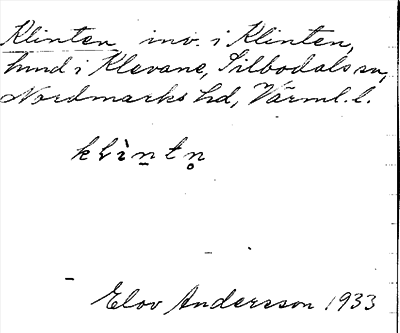 Klinten, inv. i Klinten,
hmd i Klevane, Silbodals sn,
Nordmarks hd, Värml. l.
klìn̠tn̥
Elov Andersson 1933